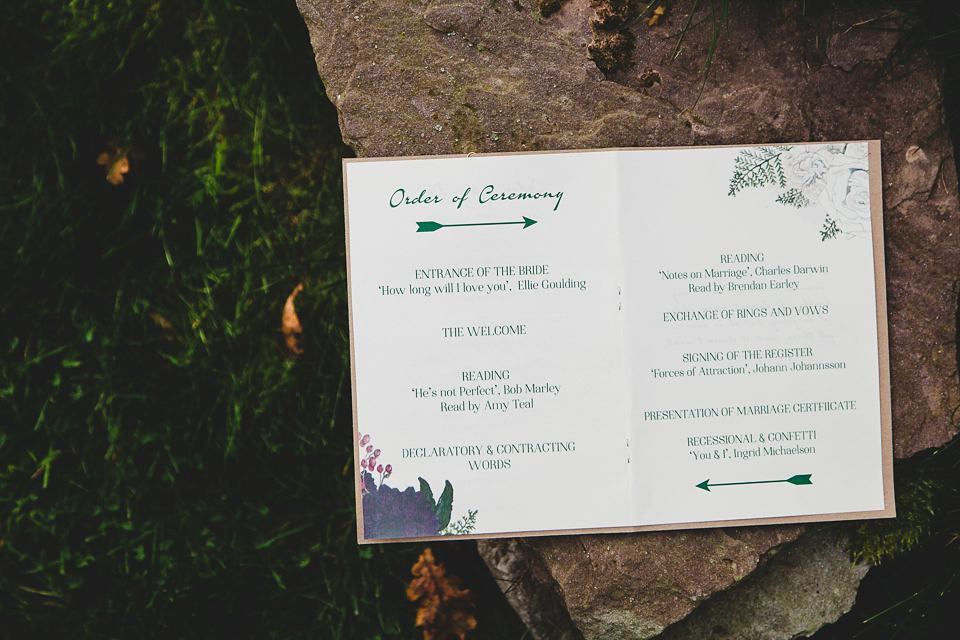 Order of Ceremony
ENTRANCE OF THE BRIDE
'How long will I love you', Ellie Goulding
THE WELCOME
READING
'He's not Perfect', Bob Marley
Read by Amy Teal
DECLARATORY & CONTRACTING
WORDS
READING
'Notes on Marriage', Charles Darwin
Read by Brendan Earley
EXCHANGE OF RINGS AND VOWS
SIGNING OF THE REGISTER
'Forces of Attraction', Johann Johannsson
PRESENTATION OF MARRIAGE CERTFIICATE
RECESSIONAL & CONFETTI
'You & I', Ingrid Michaelson